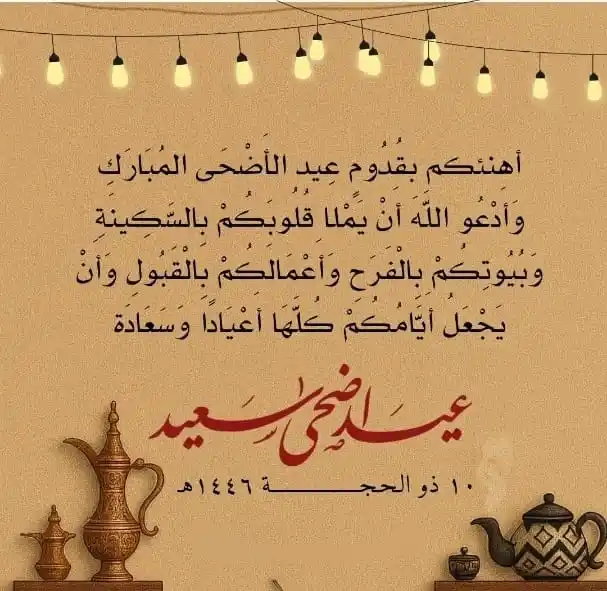 أهنئكم بقُدُومِ عِيد الأَضْحَى المُبَارَكِ
وَأدْعُو اللَّهَ أنْ يَمْلا قُلُوبَكُمْ بِالسَّكِينَةِ
وَبُيُوتِكُمْ بِالْفَرَحِ وَأعْمَالَكُمْ بِالْقَبُولِ وَأنْ
يَجْعَلُ أيَّامُكُمْ كُلَّهَا أعْيَادًا وَسَعَادَة
عيد اضحى سعيد
١٠ ذو الحجـــــــة ١٤٤٦هـ